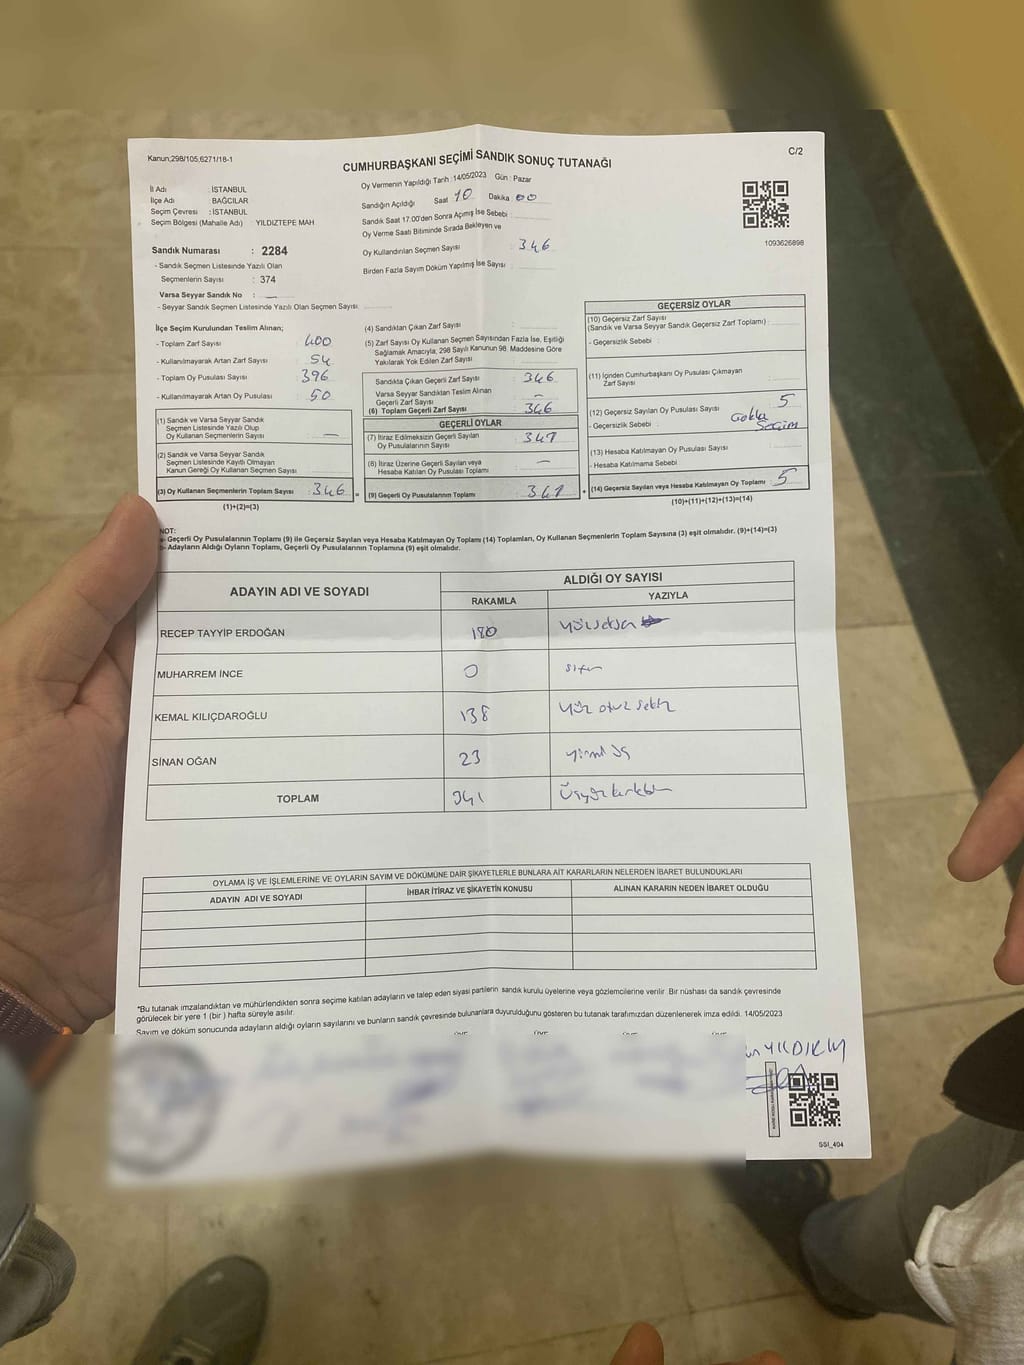 Kanun;298/105,6271/18-1
C/2
CUMHURBAŞKANI SEÇİMİ SANDIK SONUÇ TUTANAĞI
İl Adı : İSTANBUL
İlçe Adı : BAĞCILAR
Seçim Çevresi : İSTANBUL
Seçim Bölgesi (Mahalle Adı) YILDIZTEPE MAH
Sandık Numarası : 2284
- Sandık Seçmen Listesinde Yazılı Olan
Seçmenlerin Sayısı : 374
Varsa Seyyar Sandık No : —
- Seyyar Sandık Seçmen Listesinde Yazılı Olan Seçmen Sayısı
Oy Vermenin Yapıldığı Tarih :14/05/2023 Gün : Pazar
Sandığın Açıldığı Saat Dakika 00
Sandık Saat 17.00'den Sonra Açımış İse Sebebi :
Oy Verme Saati Bitiminde Sırada Bekleyen ve
Oy Kullandırılan Seçmen Sayısı : 346
Birden Fazla Sayım Döküm Yapılmış İse Sayısı :
1093626898
İlçe Seçim Kurulundan Teslim Alınan;
- Toplam Zarf Sayısı : 400
- Kullanılmayarak Artan Zarf Sayısı : 54
- Toplam Oy Pusulası Sayısı : 396
- Kullanılmayarak Artan Oy Pusulası : 50
(1) Sandık ve Varsa Seyyar Sandık
Seçmen Listesinde Yazılı Olup
Oy Kullanan Seçmenlerin Sayısı : —
(2) Sandık ve Varsa Seyyar Sandık
Seçmen Listesinde Kayıtlı Olmayan
Kanun Gereği Oy Kullanan Seçmen Sayısı :
(3) Oy Kullanan Seçmenlerin Toplam Sayısı : 346
(1)+(2)=(3)
=
(4) Sandıktan Çıkan Zarf Sayısı :
(5) Zarf Sayısı Oy Kullanan Seçmen Sayısından Fazla İse, Eşitliği
Sağlamak Amacıyla, 298 Sayılı Kanunun 98. Maddesine Göre
Yakılarak Yok Edilen Zarf Sayısı :
Sandıkta Çıkan Geçerli Zarf Sayısı : 346
Varsa Seyyar Sandıktan Teslim Alınan
Geçerli Zarf Sayısı : —
(6) Toplam Geçerli Zarf Sayısı : 346
GEÇERLİ OYLAR
(7) İtiraz Edilmeksizin Geçerli Sayılan
Oy Pusulalarının Sayısı : 341
(8) İtiraz Üzerine Geçerli Sayılan veya
Hesaba Katılan Oy Pusulası Toplamı : —
(9) Geçerli Oy Pusulalarının Toplamı : 341
+
GEÇERSİZ OYLAR
(10) Geçersiz Zarf Sayısı
(Sandık ve Varsa Seyyar Sandık Geçersiz Zarf Toplamı) :
- Geçersizlik Sebebi :
(11) İçinden Cumhurbaşkanı Oy Pusulası Çıkmayan
Zarf Sayısı :
(12) Geçersiz Sayılan Oy Pusulası Sayısı : 5
- Geçersizlik Sebebi : Çoklu
Seçim
(13) Hesaba Katılmayan Oy Pusulası Sayısı :
- Hesaba Katılmama Sebebi :
(14) Geçersiz Sayılan veya Hesaba Katılmayan Oy Toplamı : 5
(10)+(11)+(12)+(13)=(14)
NOT:
a- Geçerli Oy Pusulalarının Toplamı (9) ile Geçersiz Sayılan veya Hesaba Katılmayan Oy Toplamı (14) Toplamları, Oy Kullanan Seçmenlerin Toplam Sayısına (3) eşit olmalıdır. (9)+(14)=(3)
b- Adayların Aldığı Oyların Toplamı, Geçerli Oy Pusulalarının Toplamına (9) eşit olmalıdır.
ADAYIN ADI VE SOYADI
ALDIĞI OY SAYISI
RAKAMLA
YAZIYLA
RECEP TAYYİP ERDOĞAN 180 yüzseksen
MUHARREM İNCE 0 sıfır
KEMAL KILIÇDAROĞLU 138 yüz otuz sekiz
SİNAN OĞAN 23 yirmi üç
TOPLAM 341 Üçyüz kırkbir
OYLAMA İŞ VE İŞLEMLERİNE VE OYLARIN SAYIM VE DÖKÜMÜNE DAİR ŞİKAYETLERLE BUNLARA AİT KARARLARIN NELERDEN İBARET BULUNDUKLARI
ADAYIN ADI VE SOYADI
İHBAR İTİRAZ VE ŞİKAYETİN KONUSU
ALINAN KARARIN NEDEN İBARET OLDUĞU
*Bu tutanak imzalandıktan ve mühürlendikten sonra seçime katılan adayların ve talep eden siyasi partilerin sandık kurulu üyelerine veya gözlemcilerine verilir. Bir nüshası da sandık çevresinde
görülecek bir yere 1 (bir ) hafta süreyle asılır.
Sayım ve döküm sonucunda adayların aldığı oyların sayılarını ve bunların sandık çevresinde bulunanlara duyurulduğunu gösteren bu tutanak tarafımızdan düzenlenerek imza edildi. 14/05/2023
YILDIRIM
SSI_404